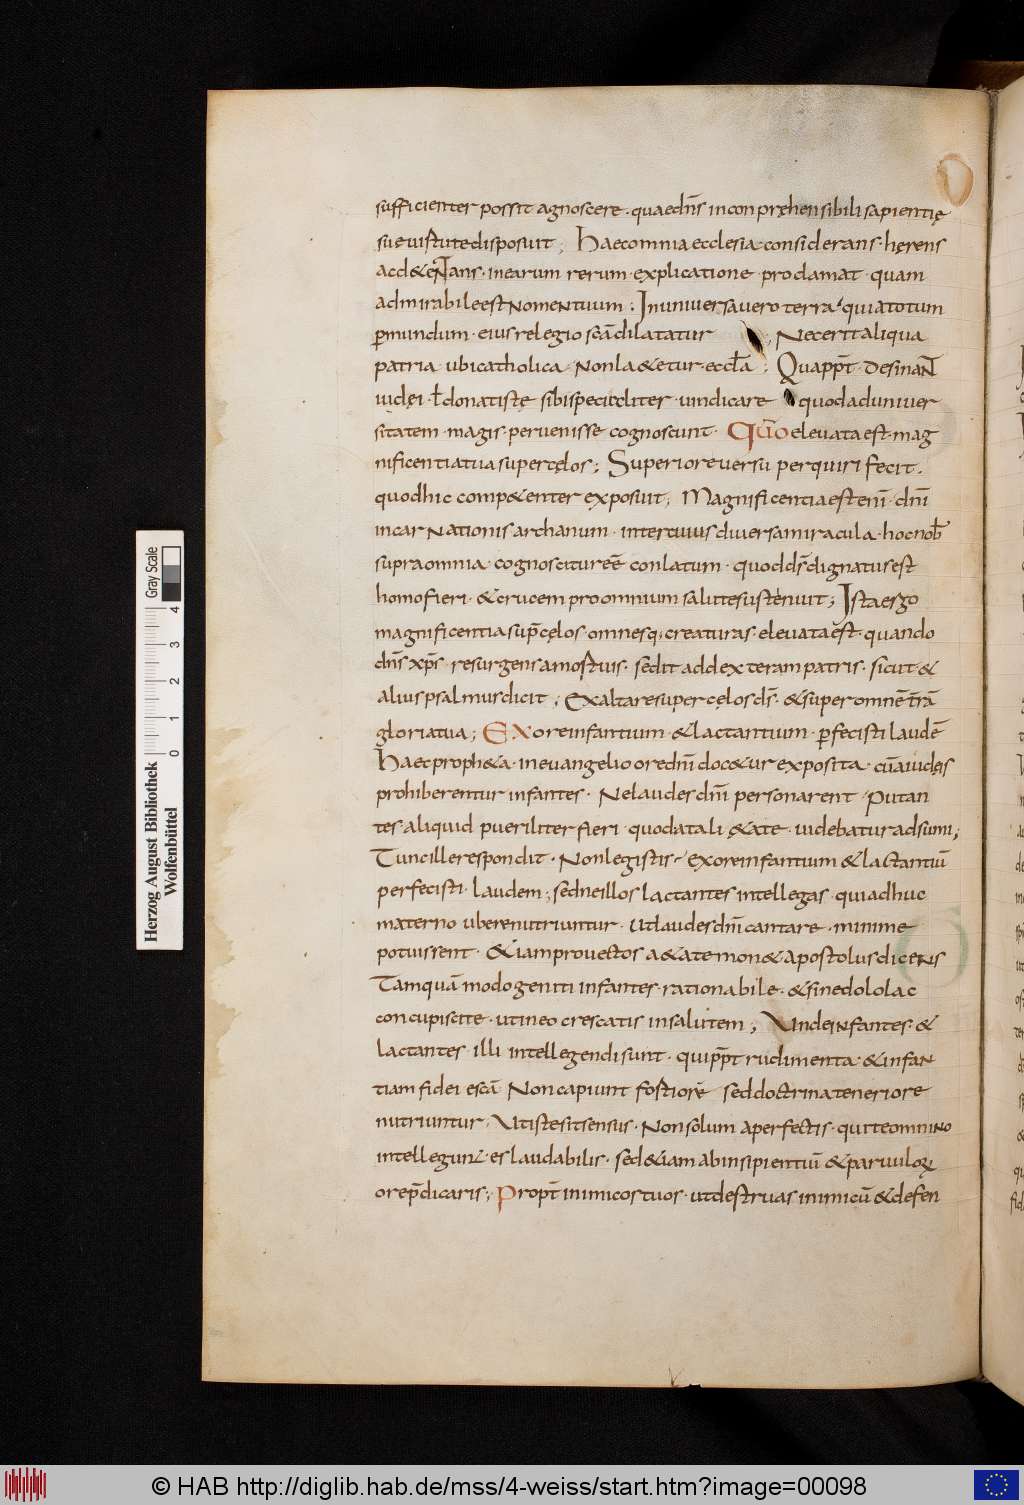 sufficienter possit agnoscere · quaedn̄s inconpręhensibili sapientię
suę uirtute disposuit ; Haec omnia ecclesia considerans · hęrens
ac d&enans · inearum rerum explicatione · proclamat · quam
admirabile est nomen tuum ; In uniuersa uero terra · quia totum
ꝑ mundum · eius relegio scā dilatatur ; Nec erit aliqua
patria · ubi catholica · Non la&etur · eccła ; Quappt̄ · desinant
iudęi · ł donatistę sibi specialiter · uindicare quod ad uniuer
sitatem · magis · peruenisse cognoscunt · Qūo eleuata est · mag
nificentia tua super cęlos ; Superiore uersu perquiri fecit ·
quod hic comp&enter exposuit ; Magnificentia est enī · dnī
incarnationis archanum · inter cuius diuersa miracula · hoc nob̄
supra omnia · cognoscitur eē conlatum · quod ds̄ dignatus est
homo fieri · & crucem pro omnium salute sustenuit ; Ista ergo
magnificentia sup̄ cęlos · omnesq; creaturas · eleuata est · quando
dn̄s xp̄s · resurgens a mortuis · sedit ad dexteram patris · sicut &
alius psalmus dicit ; Exaltare super cęlos ds̄ · & super omnē tr̄ā
gloria tua ; Ex ore infantium · & lactantium · ꝑfecisti laudē
Haec proph&a · in euangelio ore dnī doc&ur exposita · cūa iudęis
prohiberentur infantes · Ne laudes dnī personarent · Putan
tes · aliquid pueriliter fieri · quod a tali &ate · uidebatur adsumi ;
Tunc ille respondit · Non legistis · ex ore infantium & lactantiū
perfecisti · laudem ; sed ne illos lactantes intellegas · qui adhuc
materno ubere nutriuntur · Ut laudes dnī cantare · minime
potuissent · & iam prouectos a &ate mon& apostolus dicens
Tamquā modo geniti infantes · rationabile · & sine dolo lac
concupiscite · ut in eo crescatis in salutem ; Unde infantes · &
lactantes · illi intellegendi sunt · qui ppt̄ rudimenta · & infan
tiam fidei escā Non capiunt fortiorē sed doctrina teneriore
nutriuntur · Ut iste sit sensus · Non solum a perfectis · qui te omnino
intellegunt · es laudabilis · sed &iam ab insipientiū & paruuloꝝ
ore p̄dicaris ; Propt̄ inimicos tuos · ut destruas inimicū & defen
Herzog August Bibliothek
Wolfenbüttel
0 1 2 3 4
Gray Scale
© HAB http://diglib.hab.de/mss/4-weiss/start.htm?image=00098